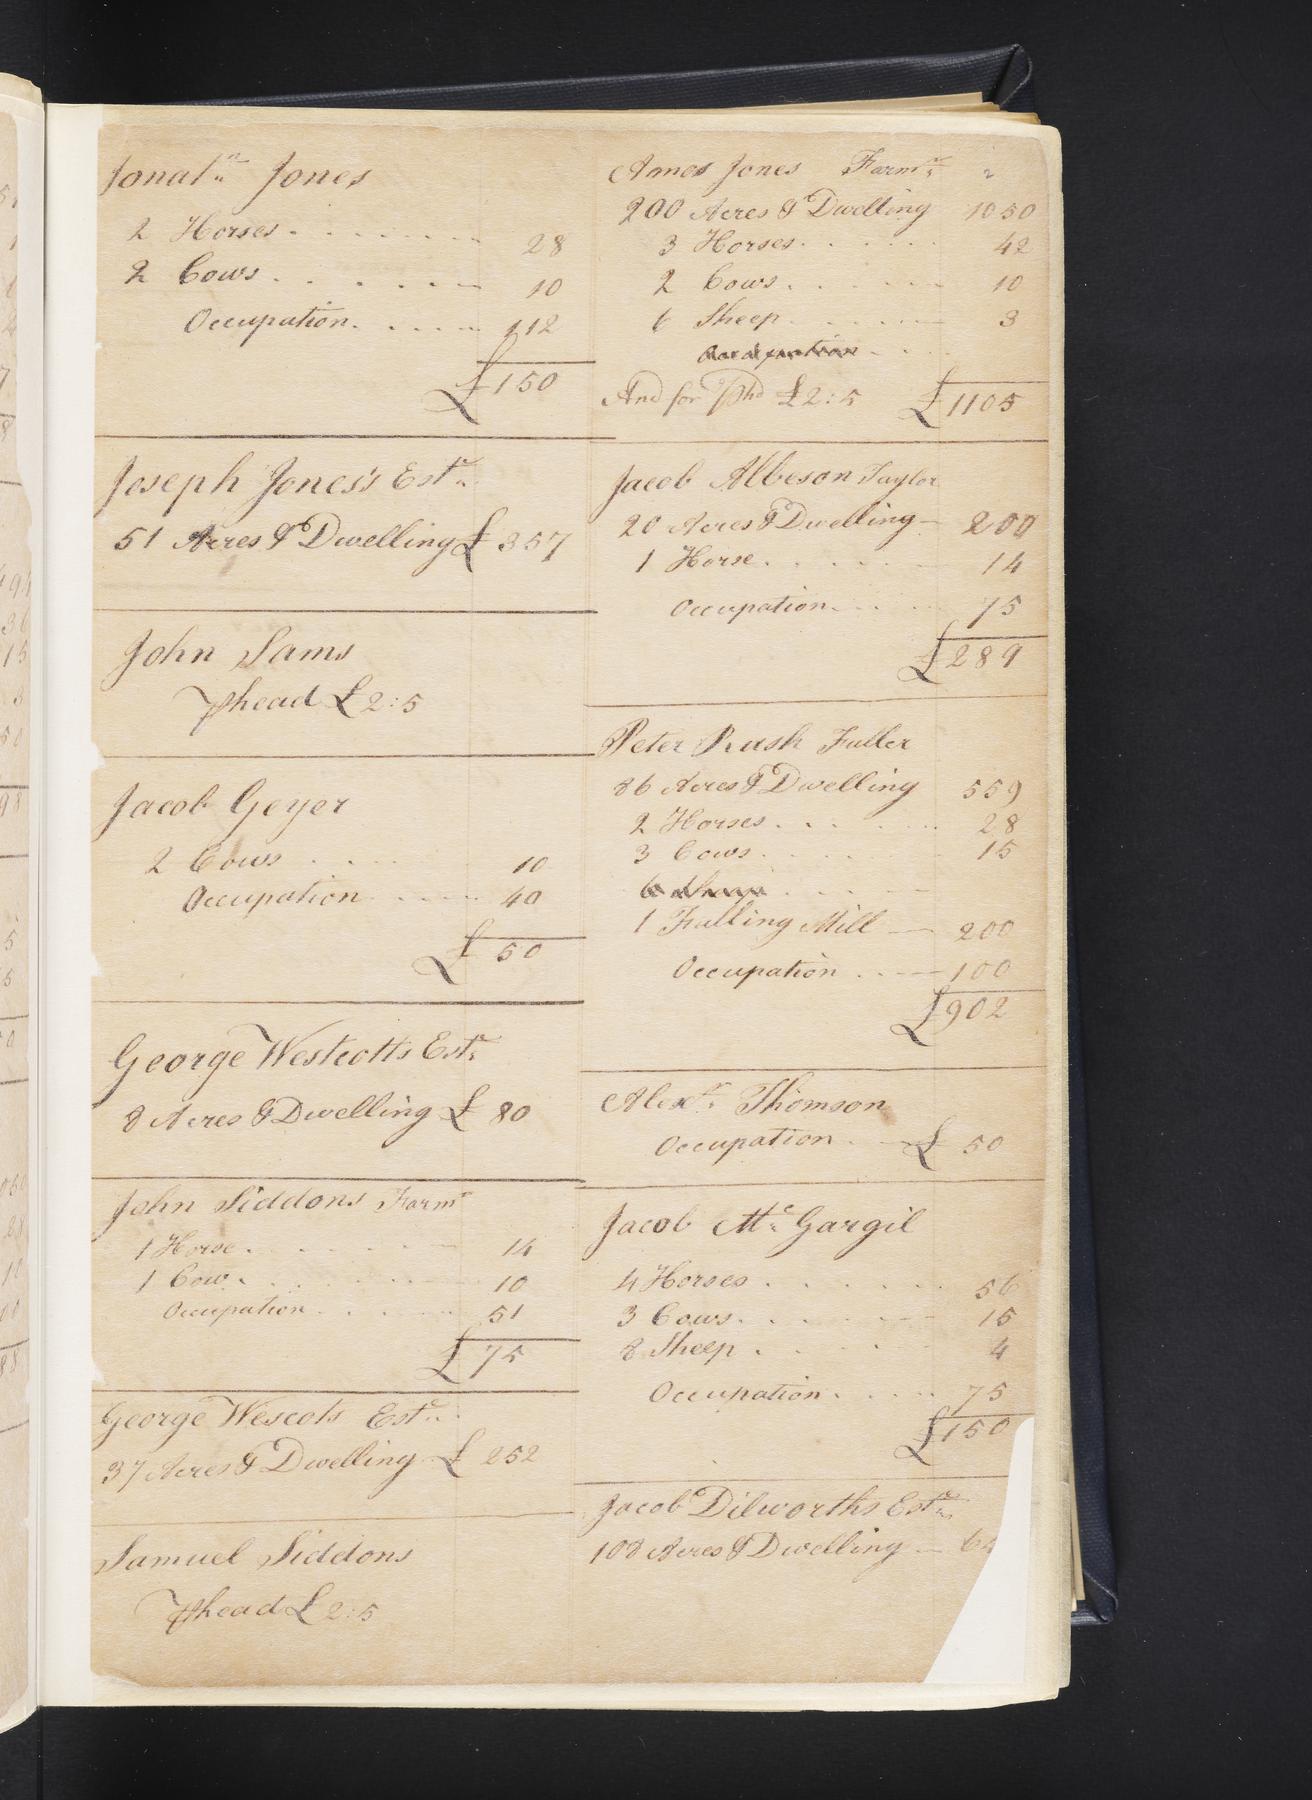 Jonatn. Jones
2 Horses . . . . . . . 28
2 Cows . . . . . . 10
Occupation . . . . . 112
£ 150
Joseph Jones's Estr.
51 Acres & Dwelling £ 357
John Sams
P head £ 2:5
Jacob Geyer
2 Cows . . . . 10
Occupation . . . . . 40
£ 50
George Westcotts Estr.
8 Acres & Dwelling £ 80
John Siddons Farmr
1 Horse . . . . . . 14
1 Cow . . . . . . 10
Occupation . . . . . 51
£ 75
George Wescots Estr.
37 Acres & Dwelling £ 252
Samuel Siddons
P head £ 2:5
Amos Jones Farmr.
200 Acres & Dwelling 1050
3 Horses . . . . . . 42
2 Cows . . . . . . 10
6 Sheep . . . . . . 3
And for P hd £2:5 £ 1105
Jacob Albeson Taylor
20 Acres & Dwelling — 200
1 Horse . . . . . . 14
Occupation . . . . . 75
£ 289
Peter Rush Fuller
86 Acres & Dwelling 559
2 Horses . . . . . . 28
3 Cows . . . . . . 15
1 Fulling Mill — 200
Occupation . . . — 100
£ 902
Alexr. Thomson
Occupation . — £ 50
Jacob Mc. Gargil
4 Horses . . . . . . 56
3 Cows . . . . . . 15
8 Sheep . . . . . 4
Occupation . . . . . 75
£ 150
Jacob Dilworths Estr.
108 Acres & Dwelling —